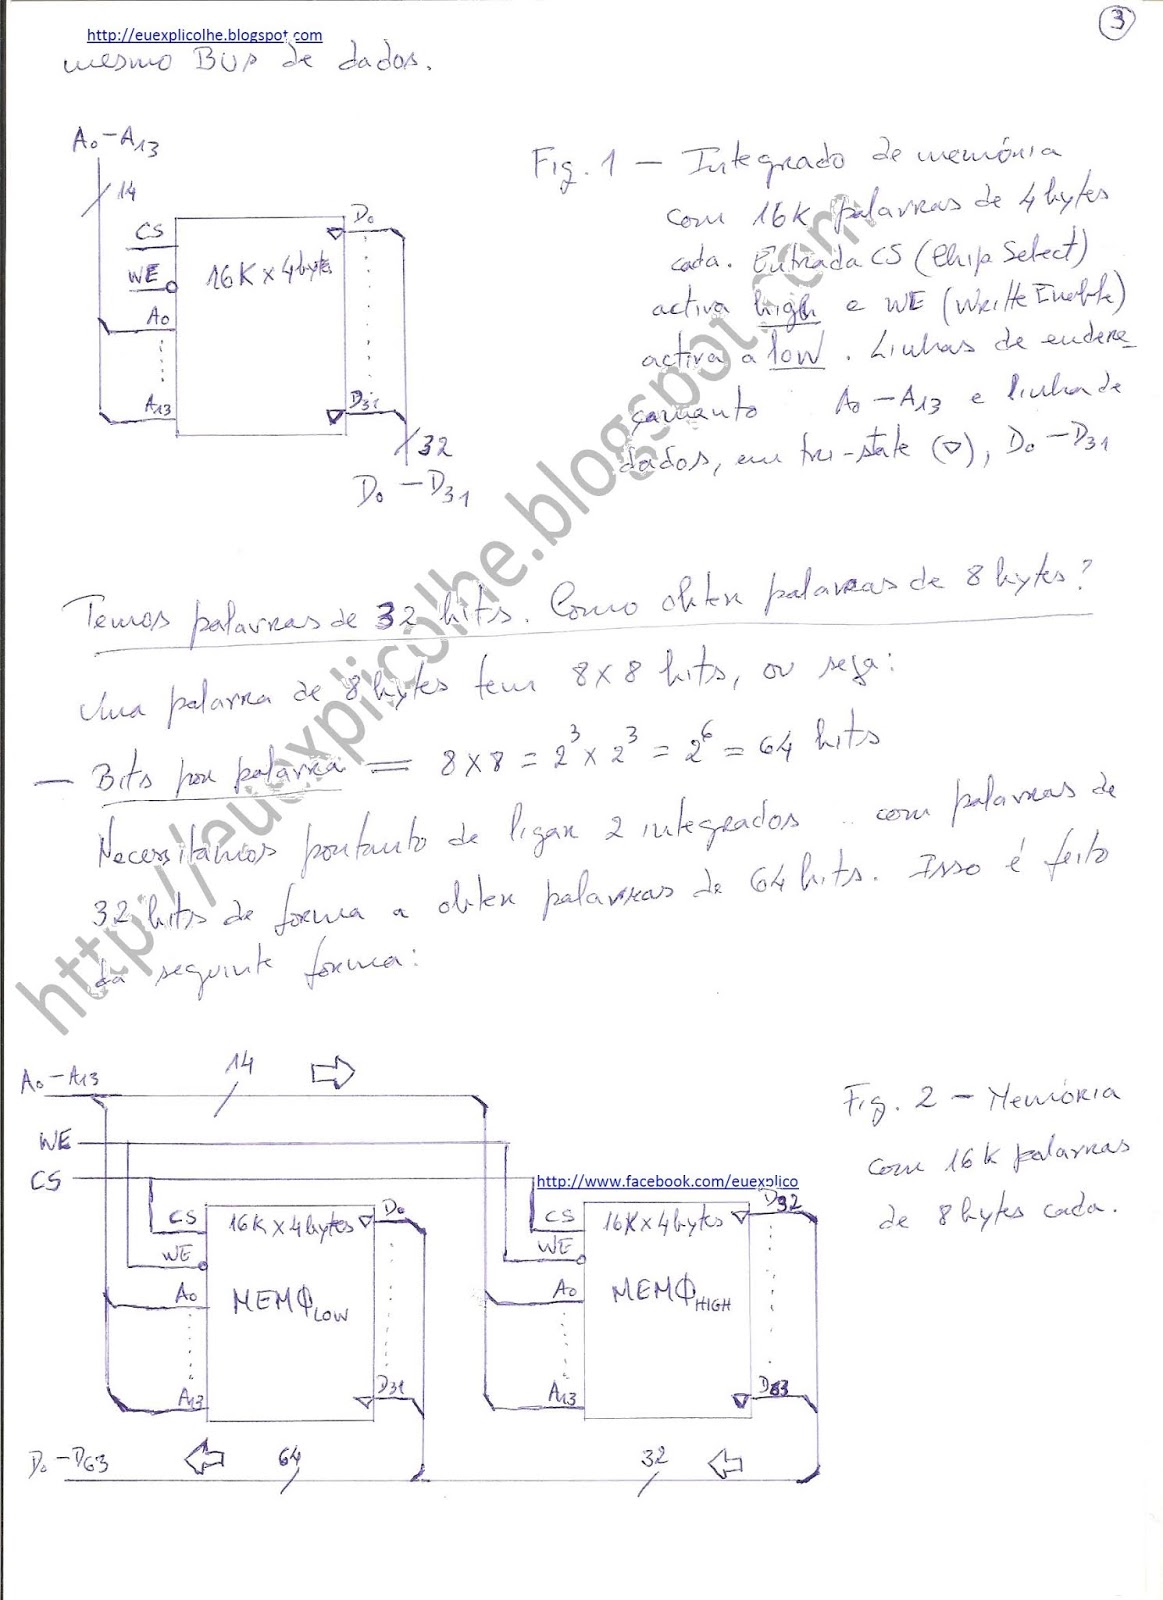 3
http://euexplicolhe.blogspot.com
mesmo BUS de dados.
A0-A13
14
CS
WE
A0
A13
16K x 4bytes
D0
D31
32
D0-D31
Fig. 1 - Integrado de memória
com 16K palavras de 4 bytes
cada. Entrada CS (Chip Select)
activa high e WE (Write Enable)
activa a low. Linhas de endere-
çamento A0-A13 e linha de
dados, em tri-state (▽), D0-D31
Temos palavras de 32 bits. Como obter palavras de 8 bytes?
Uma palavra de 8 bytes tem 8x8 bits, ou seja:
- Bits por palavra = 8x8 = 2³x2³ = 2⁶ = 64 bits
Necessitamos portanto de ligar 2 integrados com palavras de
32 bits de forma a obter palavras de 64 bits. Isso é feito
da seguinte forma:
http://euexplicolhe.blogspot.com
A0-A13
14
WE
CS
http://www.facebook.com/euexplico
CS
WE
A0
A13
16K x 4bytes
MEMΦLOW
D0
D31
CS
WE
A0
A13
16K x 4bytes
MEMΦHIGH
D32
D63
D0-D63
64
32
Fig. 2 - Memória
com 16K palavras
de 8 bytes cada.